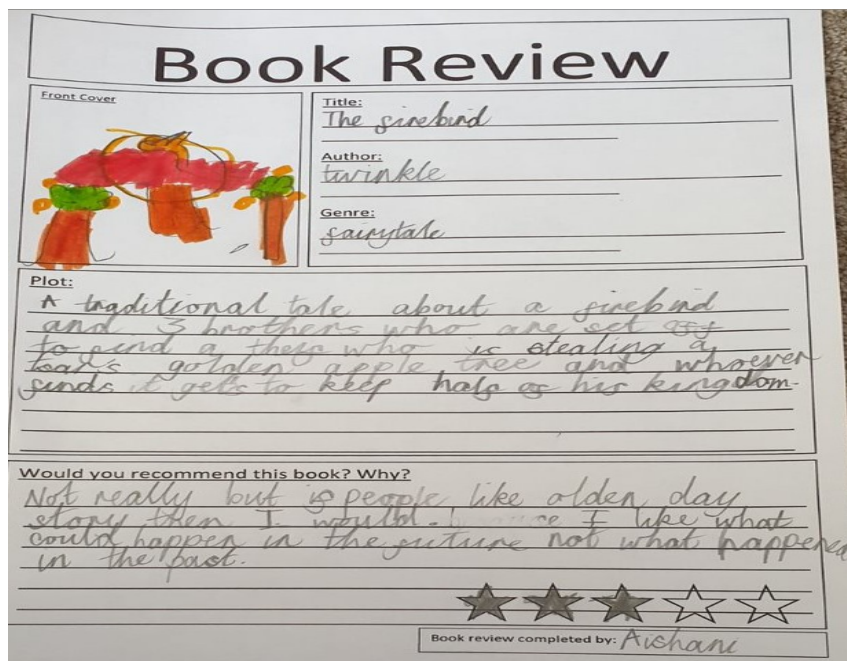 Book Review
Front Cover
Title:
The firebird
Author:
twinkle
Genre:
fairytale
Plot:
A traditional tale about a firebird
and 3 brothers who are set
to find a thief who is stealing a
tsar's golden apple tree and whoever
finds it gets to keep half of his kingdom.
Would you recommend this book? Why?
Not really but if people like olden day
story then I would. I like what
could happen in the future not what happened
in the past.
Book review completed by: Aishani